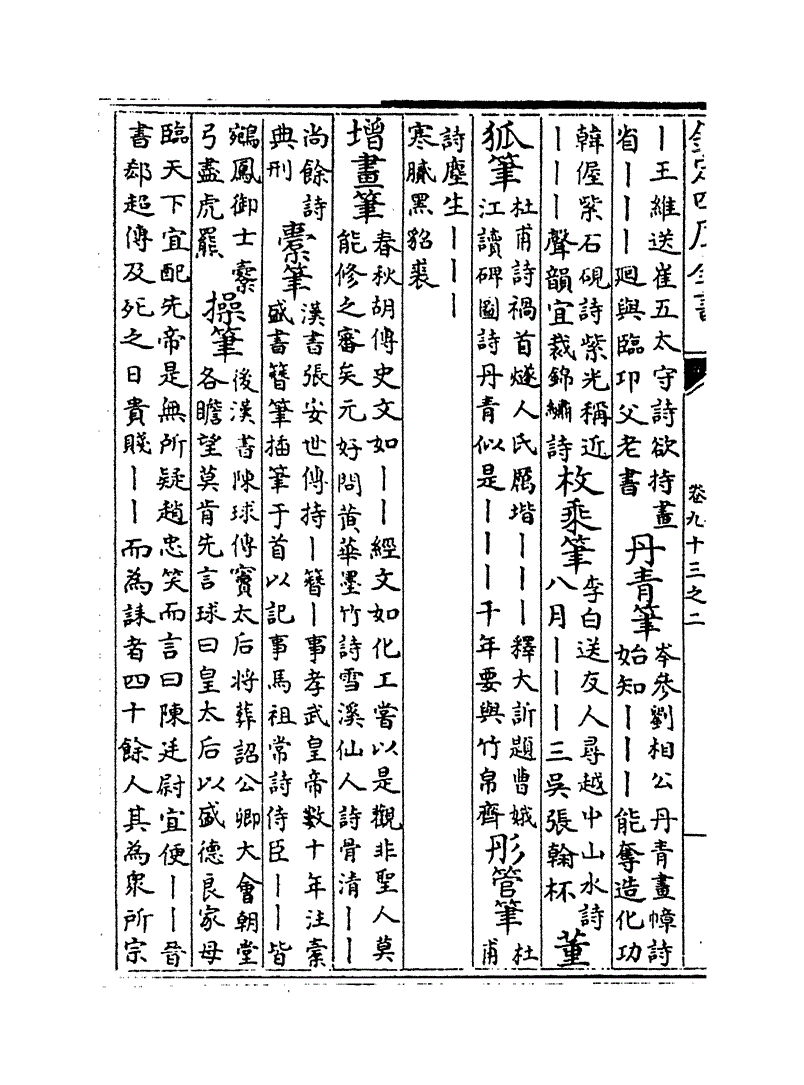 欽定四庫全書 卷九十三之二
丨王維送崔五太守詩欲持畫省丨丨丨廻與臨邛父老書 丹青筆 岑參劉相公丹青畫幛詩始知丨丨丨能奪造化功
韓偓紫石硯詩紫光稱近丨丨丨聲韻宜裁錦繡詩 枚乘筆 李白送友人尋越中山水詩八月丨丨丨三吳張翰杯 董
狐筆 杜甫詩禍首燧人氏厲堦丨丨丨釋大訢題曹娥江讀碑圖詩丹青似是丨丨丨千年要與竹帛齊 彤管筆 杜甫
詩塵生丨丨丨寒膩黑貂裘
增畫筆 春秋胡傳史文如丨丨經文如化工當以是觀非聖人莫能修之審矣元好問黄華墨竹詩雪溪仙人詩骨清丨丨
尚餘詩典刑 橐筆 漢書張安世傳持丨簪丨事孝武皇帝數十年注橐盛書簪筆插筆于首以記事馬祖常詩侍臣丨丨皆
鵷鳳御士櫜弓盡虎羆 操筆 後漢書陳球傳竇太后將葬詔公卿大會朝堂各瞻望莫肯先言球曰皇太后以盛德良家母
臨天下宜配先帝是無所疑趙忠笑而言曰陳廷尉宜便丨丨晉書郄超傳及死之日貴賤丨丨而為誄者四十餘人其為衆所宗